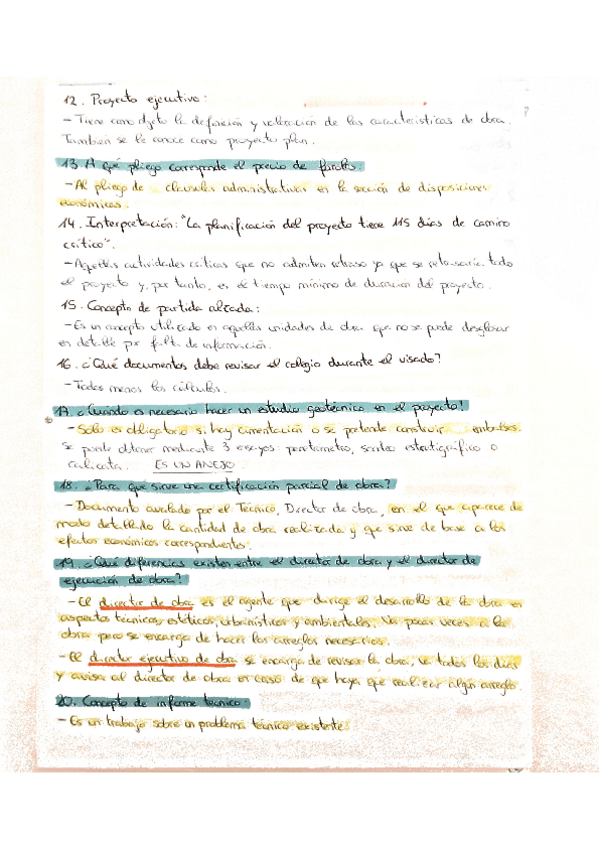 12. Proyecto ejecutivo:
- Tiene como objeto la definición y valoración de las características de obra.
También se le conoce como proyecto plan.
13. A qué pliego corresponde el precio de
- Al pliego de clausulas administrativas en la sección de disposiciones
económicas.
14. Interpretación: "La planificación del proyecto tiene 115 días de camino
crítico".
- Aquellas actividades críticas que no admiten retraso ya que se retrasaría todo
el proyecto y, por tanto, es el tiempo mínimo de duración del proyecto.
15. Concepto de partida alzada:
- Es un concepto utilizado en aquellas unidades de obra que no se puede desglosar
en detalle por falta de información.
16. ¿Qué documentos debe revisar el colegio durante el visado?
- Todos menos los cálculos.
17. ¿Cuándo es necesario hacer un estudio geotécnico en el proyecto?
- Solo es obligatorio si hay cimentación o se pretende construir embalses.
Se puede obtener mediante 3 ensayos: penetrómetro, sondeo estratigráfico o
calicata. ES UN ANEJO
18. ¿Para qué sirve una certificación parcial de obra?
- Documento avalado por el Técnico, Director de obra, en el que aparece de
modo detallado la cantidad de obra realizada y que sirve de base a los
efectos económicos correspondientes.
19. ¿Qué diferencias existen entre el director de obra y el director de
ejecución de obra?
- El director de obra es el agente que dirige el desarrollo de la obra en
aspectos técnicos, estéticos, urbanísticos y ambientales. Va pocas veces a la
obra pero se encarga de hacer los arreglos necesarios.
- El director ejecutivo de obra se encarga de revisar la obra, va todos los días
y avisa al director de obra en caso de que haya que realizar algún arreglo.
20. Concepto de informe técnico:
- Es un trabajo sobre un problema técnico existente.